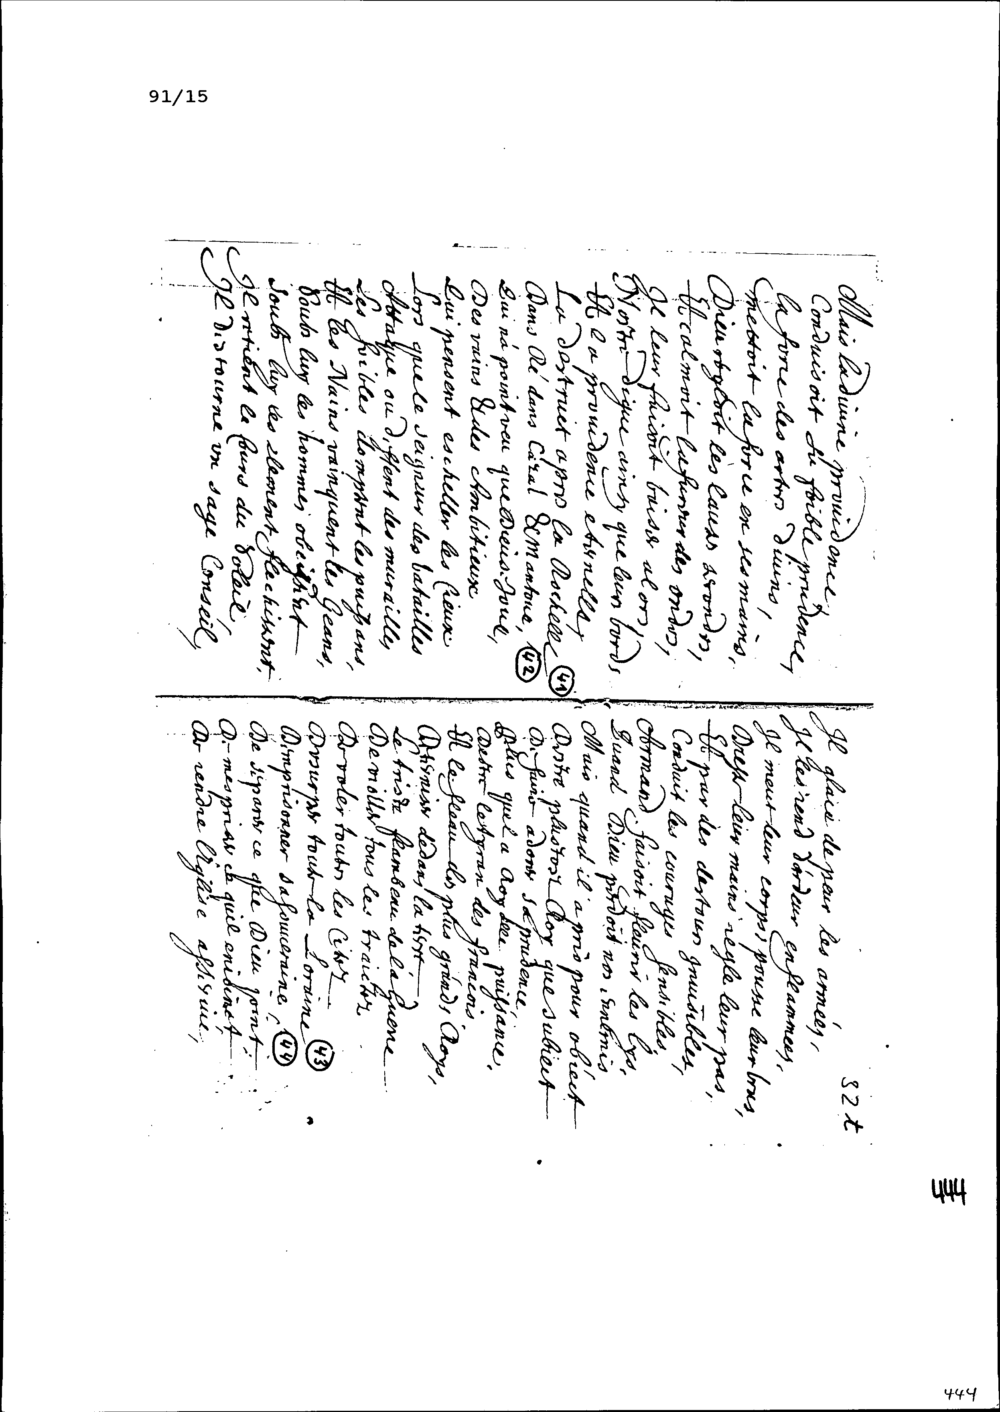 91/15
Mais la divine providence,
Conduisoit sa foible prudence,
la force des astres divins,
mettoit la force en ses mains,
Dieu regloit les eaux
Et calmoit la fureur des ondes,
Et leur faisoit baiser alors,
Nostre digue ainsy que leurs bords,
Et la providence eternelle,
La destruit apres la Rochelle 41
Dans Ré dans Cazal & Mantoue, 42
Qui na point veu que Dieu se joue,
Des vains & des Ambitieux
Qui pensent escheller les Cieux
Lors que le seigneur des batailles
Attaque ou deffent des murailles,
Les foibles domptent les puissans,
Et les Nains vainquent les Geans,
Soubs luy les hommes obeissent
Soubs luy les element flechissent,
Il retient le Cours du Soleil,
Il distourne un sage Conseil,
Il glace de peur les armées,
Il les rend d'ardeur enflammees,
Il meut leur corps, pousse leur bras,
Dresse leur mains regle leur pas,
Et par des destours
Conduit les courages sensibles,
Armand faisoit fleurir les Lys,
Quand Dieu perdoit nos
Mais quand il a pris pour object
Autre plustost Roy que subiect
De sa prudence,
Plus que la Royalle puissance,
Destre le gran des francois
Et le fleau des plus grands Roys,
dedans la terre
Le triste flambeau de la guerre
De tous les traictez
De voler toutes les Citez
Dusurper toute la Loraine 43
Dimprisonner sa souveraine, 44
De separer ce que Dieu joint,
De mespriser ce quil enjoinct,
De rendre l'Eglise
92 t
444
444